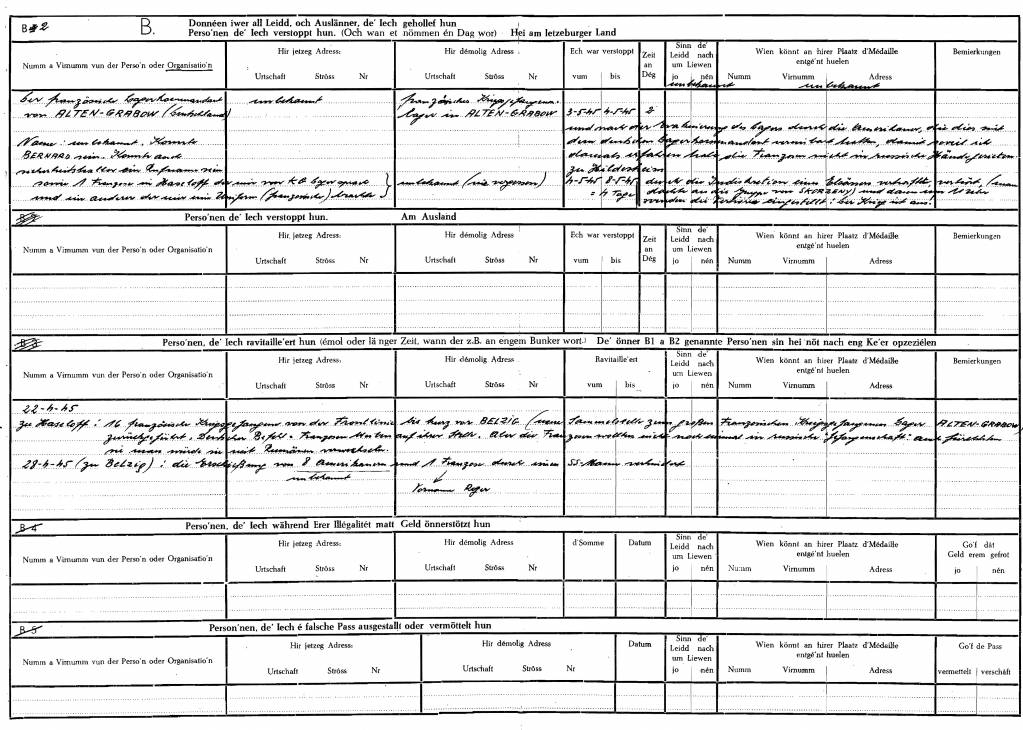 B 2 B. Donnéen iwer all Leidd, och Auslänner, de' Iech gehollef hun
Perso'nen de' Iech verstoppt hun. (Och wan et nömmen én Dag wor) Hei am letzeburger Land
Numm a Virnumm vun der Perso'n oder Organisatio'n
Hir jetzeg Adress:
Urtschaft Ströss Nr
Hir démolig Adress
Urtschaft Ströss Nr
Ech war verstoppt
vum bis
Zeit an Dég
Sinn de' Leidd nach um Liewen
jo nén
Wien könnt an hirer Plaatz d'Médaille entgé'nt huelen
Numm Virnumm Adress
Bemierkungen
unbekannt unbekannt
Der französische Lagerkommandant unbekannt französisches Kriegsgefangenen-
von ALTEN-GRABOW (Deutschland) lager in ALTEN-GRABOW 3-5-45 4-5-45 2
und nach der Evakuierung des Lagers durch die Amerikaner, die dies mit
Name: unbekannt, Konnte dem deutschen Lagerkommandant vereinbart hatten, damit soviel ich
BERNARD sein. Konnte auch damals erfahren habe, die Franzosen nicht in russische Hände
ein Rufname sein zu
sowie 1 Franzose in Haseloff der mir vor unbekannt (nie vergessen) 4-5-45 8-5-45 durch die Indiskretion eines verhört, (man
und ein anderer der mir eine Uniform (französische) brachte = 4 Tage dachte an die Gruppe von SKORZENY) und dann um
wurden die Verhöre eingestellt: Der Krieg ist aus!
Perso'nen de' Iech verstoppt hun. Am Ausland
Numm a Virnumm vun der Perso'n oder Organisatio'n
Hir jetzeg Adress:
Urtschaft Ströss Nr
Hir démolig Adress
Urtschaft Ströss Nr
Ech war verstoppt
vum bis
Zeit an Dég
Sinn de' Leidd nach um Liewen
jo nén
Wien könnt an hirer Plaatz d'Médaille entgé'nt huelen
Numm Virnumm Adress
Bemierkungen
B 3 Perso'nen, de' Iech ravitaille'ert hun (émol oder länger Zeit, wann der z.B. an engem Bunker wort.) De' önner B1 a B2 genannte Perso'nen sin hei nöt nach eng Ke'er opzeziélen
Numm a Virnumm vun der Perso'n oder Organisatio'n
Hir jetzeg Adress:
Urtschaft Ströss Nr
Hir démolig Adress
Urtschaft Ströss Nr
Ravitaille'ert
vum bis
Sinn de' Leidd nach um Liewen
jo nén
Wien könnt an hirer Plaatz d'Médaille entgé'nt huelen
Numm Virnumm Adress
Bemierkungen
22-4-45
zu Haseloff: 16 französische Kriegsgefangene von der Frontlinie bis kurz vor BELZIG (eine Sammelstelle zum großen Französischen Kriegsgefangenen Lager ALTEN-GRABOW)
zurückgeführt. Deutscher Befehl. Franzosen auf ihrer Stelle. Aber die Franzosen wollten nicht noch einmal in russische Gefangenschaft und fürchteten
man würde sie mit Rumänen verwechseln.
28-4-45 (zu Belzig): die Erschießung von 8 Amerikanern und 1 Franzose durch einen SS-Mann verhindert
unbekannt Vorname Roger
B 4 Perso'nen, de' Iech während Erer Illégalitét matt Geld önnerstötzt hun
Numm a Virnumm vun der Perso'n oder Organisatio'n
Hir jetzeg Adress:
Urtschaft Ströss Nr
Hir démolig Adress
Urtschaft Ströss Nr
d'Somme
Datum
Sinn de' Leidd nach um Liewen
jo nén
Wien könnt an hirer Plaatz d'Médaille entgé'nt huelen
Numm Virnumm Adress
Go'f dât Geld erem gefrot
jo nén
B 5 Person'nen, de' Iech é falsche Pass ausgestallt oder vermöttelt hun
Numm a Virnumm vun der Perso'n oder Organisatio'n
Hir jetzeg Adress:
Urtschaft Ströss Nr
Hir démolig Adress
Urtschaft Ströss Nr
Datum
Sinn de' Leidd nach um Liewen
jo nén
Wien könnt an hirer Plaatz d'Médaille entgé'nt huelen
Numm Virnumm Adress
Go'f de Pass
vermettelt verschâft